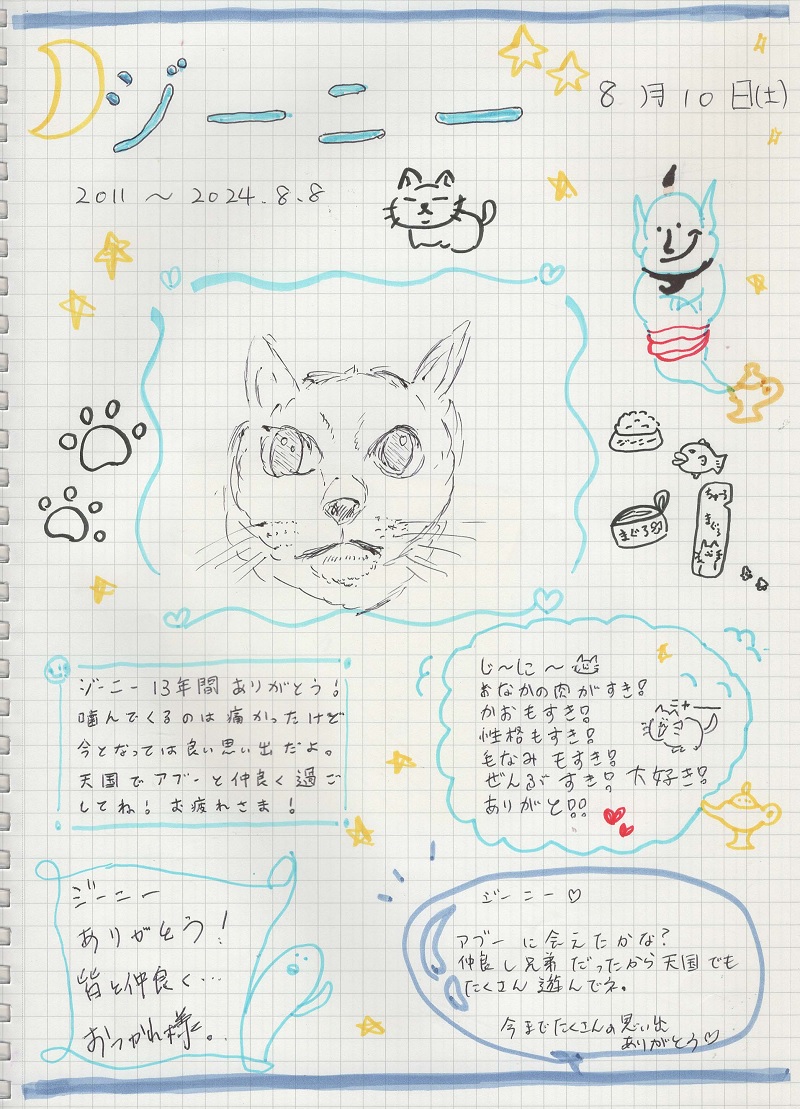 ジーニー
8月10日(土)
2011 ～ 2024.8.8
ちゅ～る
まぐろ
まぐろ
ジーニー 13年間 ありがとう!
噛んでくるのは 痛かったけど
今となっては良い思い出だよ。
天国で アブーと仲良く 過ご
してね! お疲れさま!
じ～に～
おなかの肉がすき!
かおもすき!
性格もすき!
毛なみもすき!
ぜんぶ すき! 大好き!
ありがと!!
ニャー
ジーニー
ありがとう!
皆と仲良く…
おつかれ様。
ジーニー♡
アブーに会えたかな?
仲良し兄弟だったから天国でも
たくさん遊んでネ。
今までたくさんの思い出
ありがとう♡